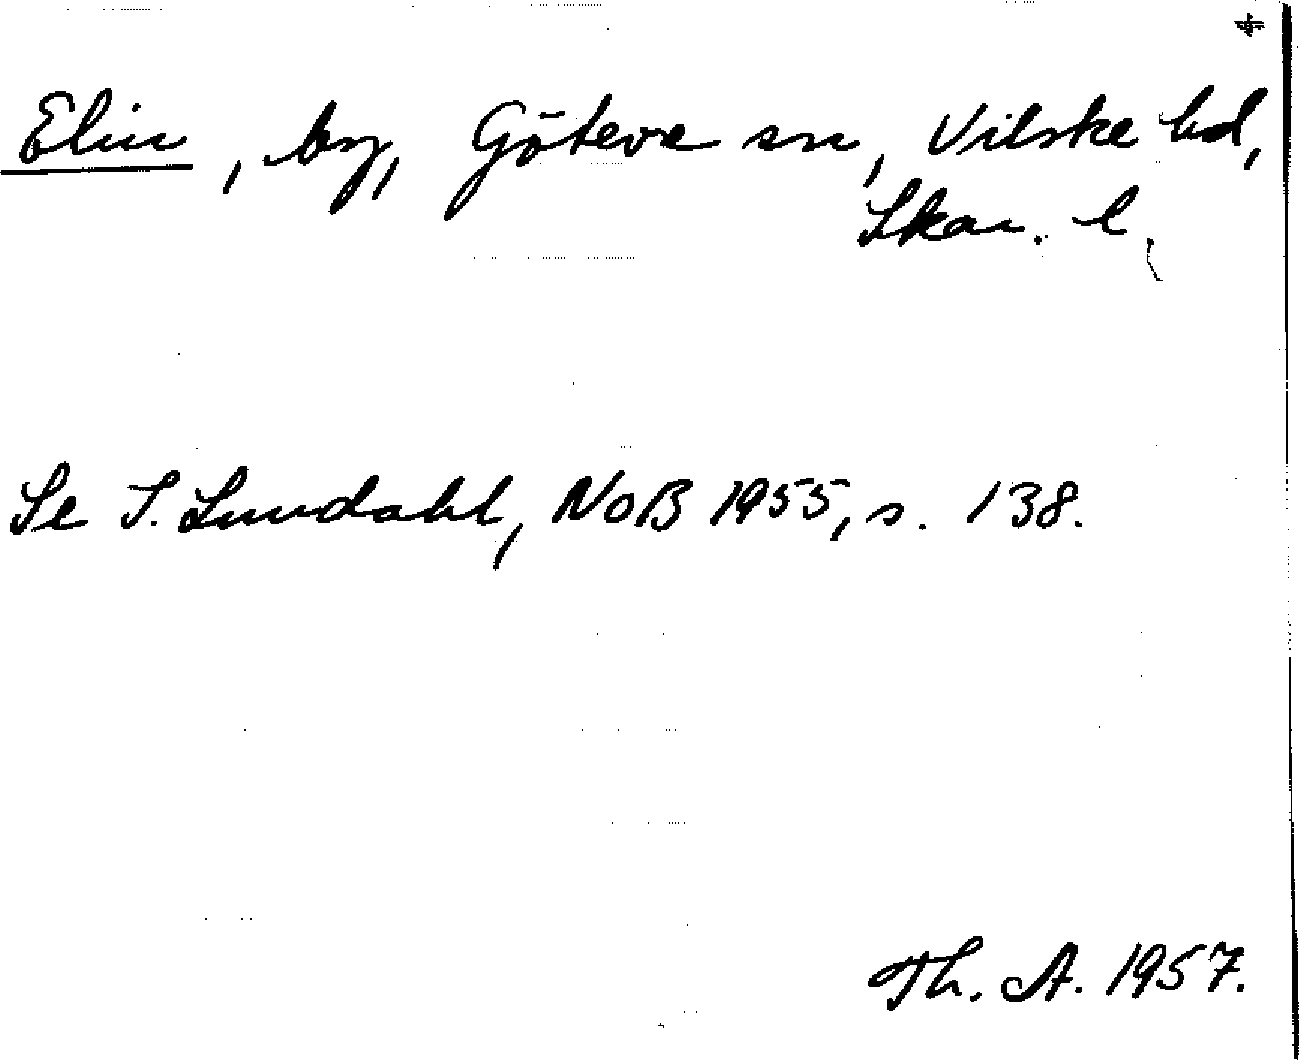 Elin, by, Göteve sn, Vilske hd,
Skar. l.
Se I. Lundahl, NoB 1955, s. 138.
Th. A. 1957.